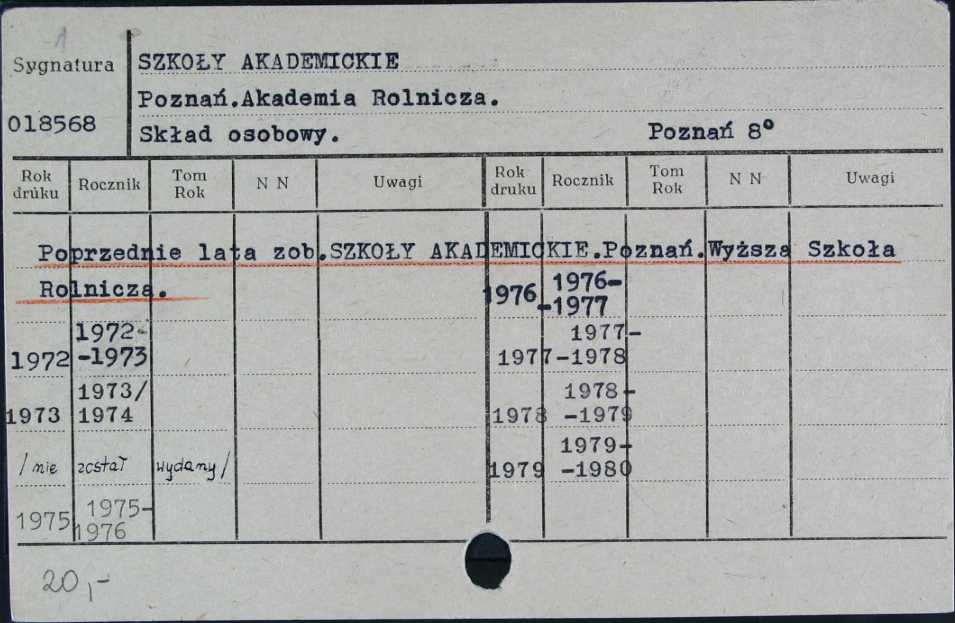 1
Sygnatura
018568
SZKOŁY AKADEMICKIE
Poznań.Akademia Rolnicza.
Skład osobowy. Poznań 8°
Rok druku Rocznik Tom Rok N N Uwagi Rok druku Rocznik Tom Rok N N Uwagi
Poprzednie lata zob.SZKOŁY AKADEMICKIE.Poznań.Wyższa Szkoła
Rolnicza.
1972 1972-
-1973
1973 1973/
1974
/nie został wydany/
1975 1975-
1976
1976 1976-
-1977
1977-
1977-1978
1978-
1978 -1979
1979-
1979 -1980
20,-